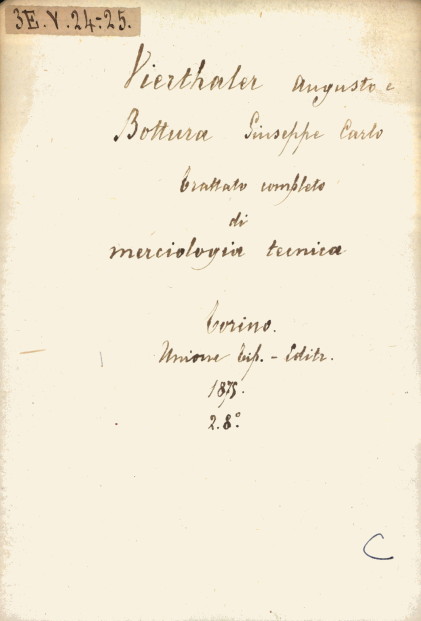 3E.V.24-25.
Vierthaler Augusto e
Bottura Giuseppe Carlo
Trattato completo
di
merciologia tecnica
Torino.
Unione Tip. - Editr.
1875.
2.8°.
C